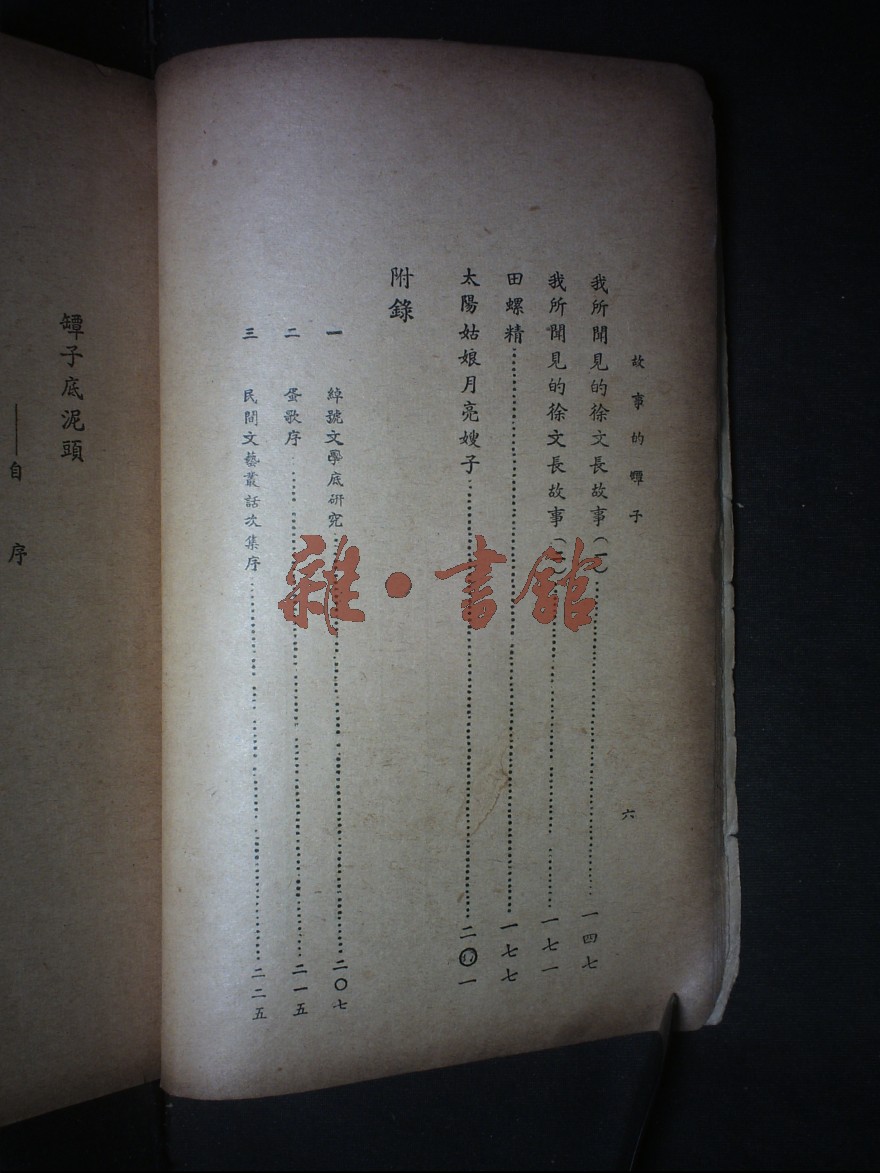 故事的罈子
六
我所聞見的徐文長故事(一)……一四七
我所聞見的徐文長故事(二)……一七一
田螺精……一七七
太陽姑娘月亮嫂子……二〇一
附錄
一 綽號文學底研究……二〇七
二 蛋歌序……二一五
三 民間文藝叢話次集序……二二五
罈子底泥頭
——自序
雜·書館